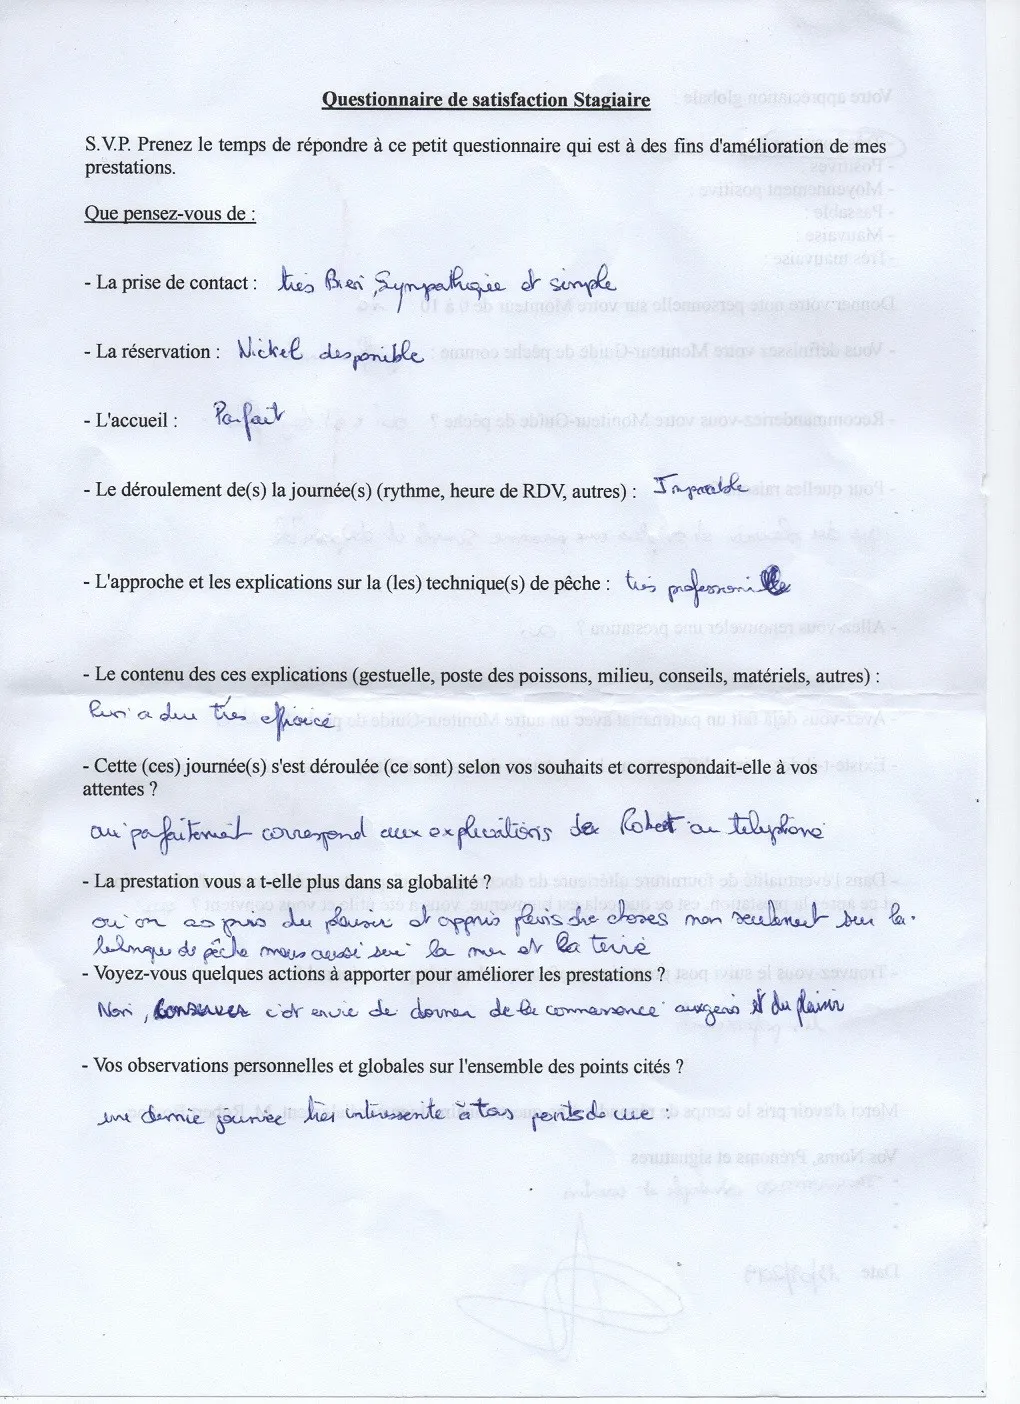 Questionnaire de satisfaction Stagiaire
S.V.P. Prenez le temps de répondre à ce petit questionnaire qui est à des fins d'amélioration de mes
prestations.
Que pensez-vous de :
- La prise de contact : très Bien, Sympathique et simple
- La réservation : Nickel desponible
- L'accueil : Parfait
- Le déroulement de(s) la journée(s) (rythme, heure de RDV, autres) : Impecable
- L'approche et les explications sur la (les) technique(s) de pêche : très professionnelle
- Le contenu des ces explications (gestuelle, poste des poissons, milieu, conseils, matériels, autres) :
très efficace
- Cette (ces) journée(s) s'est déroulée (ce sont) selon vos souhaits et correspondait-elle à vos
attentes ?
oui parfaitement correspond aux explications de Robert au telephone
- La prestation vous a t-elle plus dans sa globalité ?
oui on as pris du plaisir et appris pleins de choses non seulement sur la
technique de pêche mais aussi sur la mer et la terre
- Voyez-vous quelques actions à apporter pour améliorer les prestations ?
Non, conserver c'est envie de donner de la connaissance aux gens et du plaisir
- Vos observations personnelles et globales sur l'ensemble des points cités ?
une demie journée très interessente à tous points de vue :